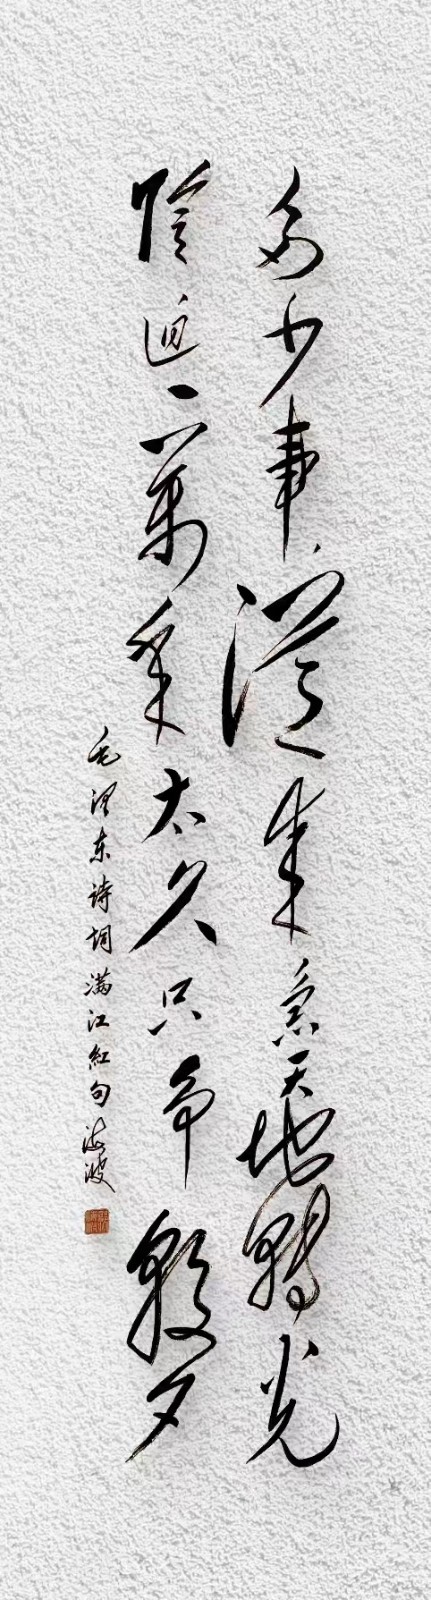 多少事從来急天地轉光
陰迫一萬年太久只争朝夕
毛泽东诗词满江紅句海波